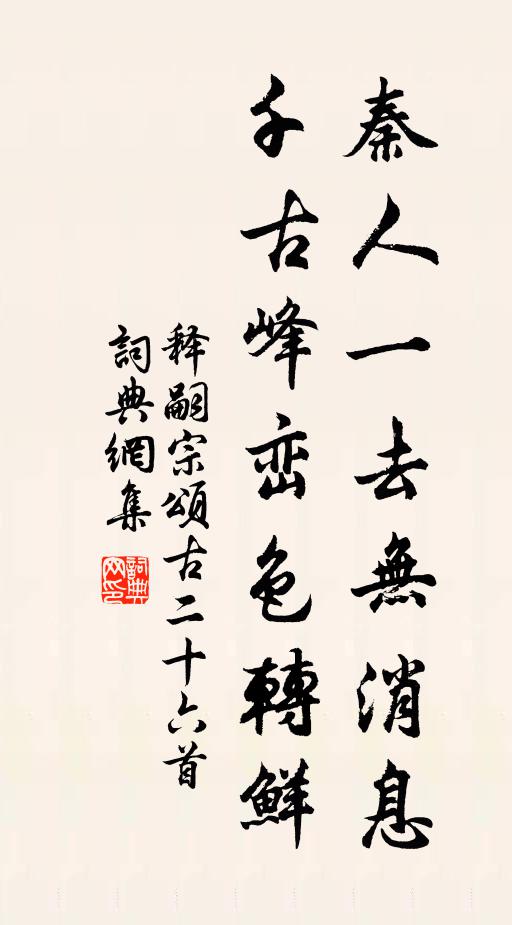 秦人一去無消息
千古峰峦色轉鮮
释嗣宗頌古二十六首
詞典網集
詞典網印